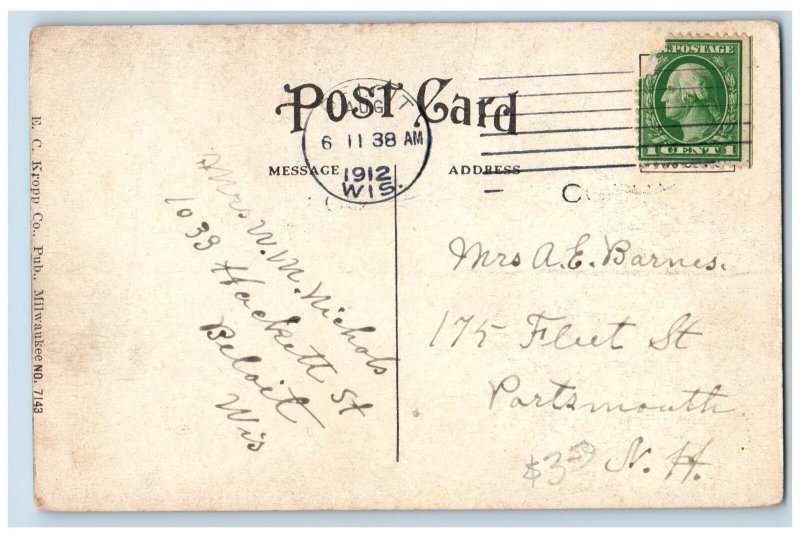 POST CARD
AUG
6 11 38 AM
1912
WIS.
U.S. POSTAGE
1 CENT 1
MESSAGE
ADDRESS
C
Mrs W. M. Nichols
1039 Hackett St
Beloit
Wis
Mrs A.E. Barnes.
175 Fleet St
Portsmouth
N. H.
$3
E. C. Kropp Co., Pub., Milwaukee NO. 7143